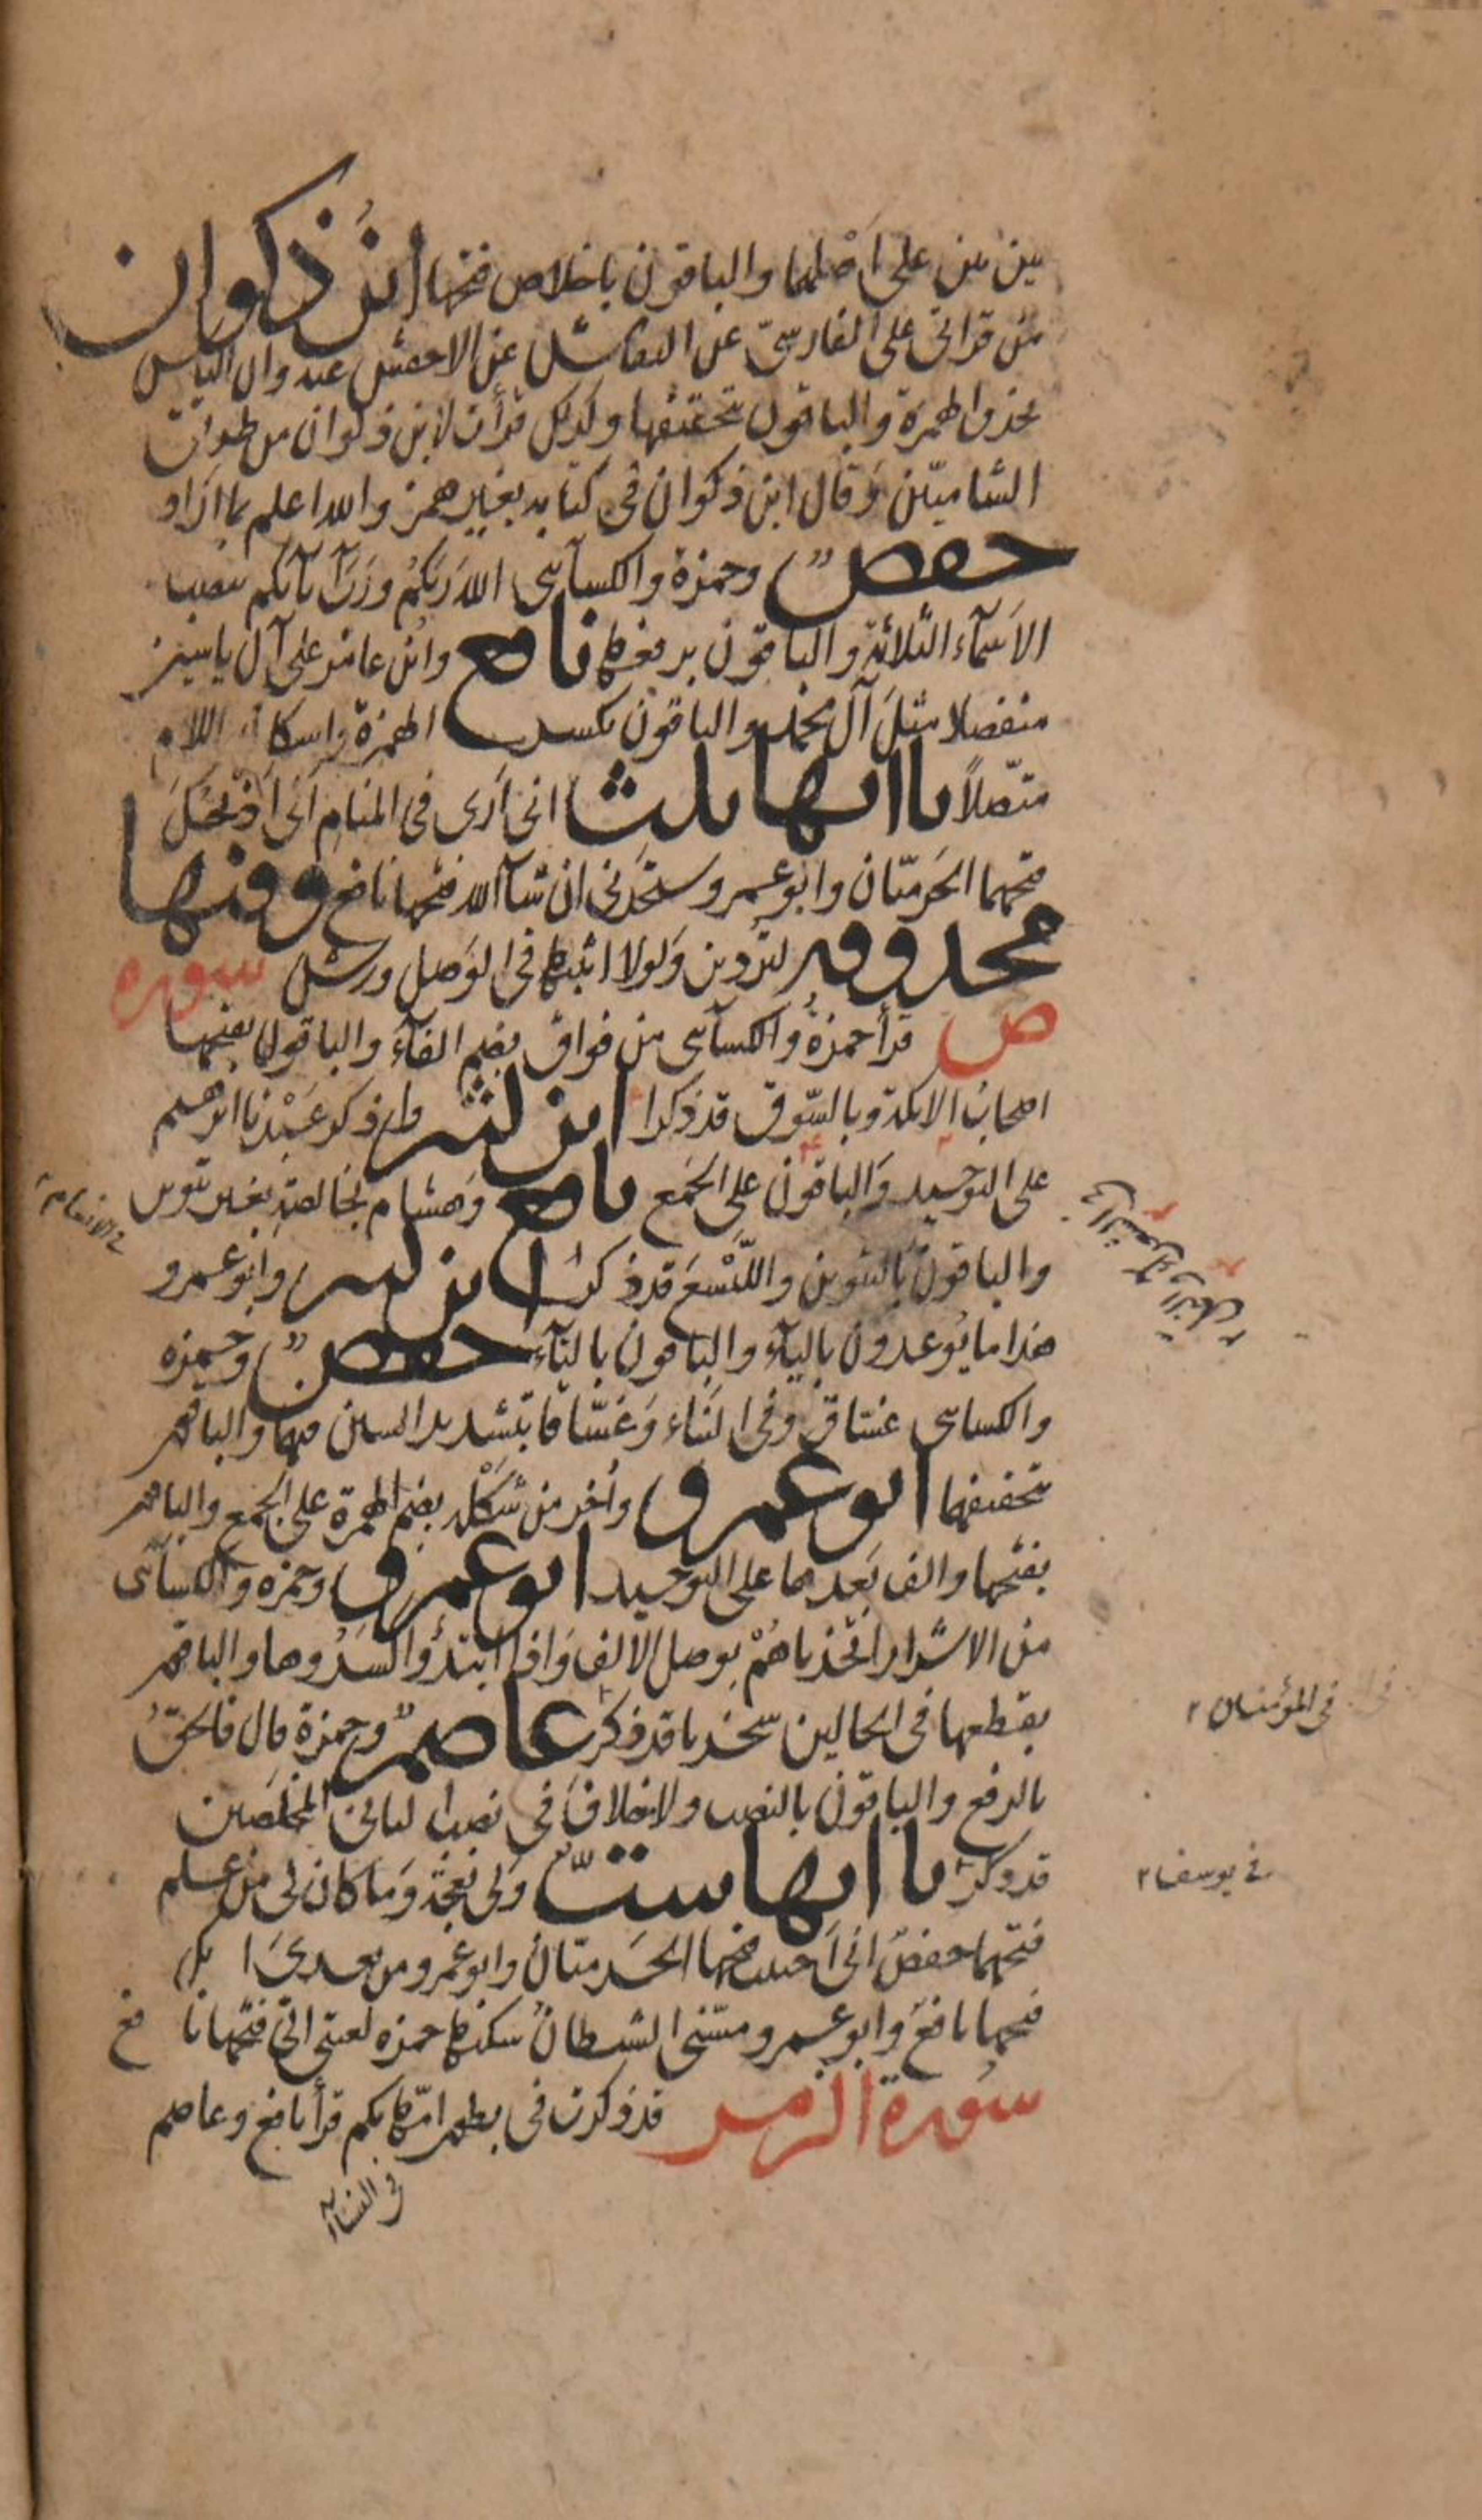 بين بين على اصلهما والباقون باخلاص فتحها ابن ذكوان
من قراتى على الفارسىّ عن النقاش عن الاخفش عنه وان الياس
بحذف الهمزة والباقون بتحقيقها وكذلك قرأت لابن ذكوان من طرق
الشاميّن وقال ابن ذكوان فى كتابه بغير همز والله اعلم بما اراد
حفص وحمزة والكسآئى اللهَ ربَّكُم وربَّ آبآئكم بنصب
الاسمآء الثلاثة والباقون برفعها نافع وابن عامر على آل ياسين
منفصلا مثل آل محمد والباقون بكسر الهمزة واسكان اللام
متّصلاً ياآتها ثلث انى ارى فى المنام انى اذبحك
فتحهما الحرميّان وابو عمرو ستجدنى ان شآ الله فتحها نافع وفيها
محذوفة لتردين ولولا اثبتها فى الوصل ورش سورة
ص قرأ حمزة والكسآئى من فواق بضم الفآء والباقون بفتحها
اصحاب الايكة وبالسّوق قد ذكرا ابن كثير واذكر عبدنا ابرهيم
على التوحيد والباقون على الجمع نافع وهشام بخالصة بغير تنوين
والباقون بالتنوين واللّيسع قد ذكر ابن كثير وابو عمرو
هذا ما يوعدون باليآء والباقون بالتآء حفص وحمزة
والكسائى غسّاق وفى النباء وغسّاقا بتشديد السين فيهما والباقون
بتخفيفها ابو عمرو واُخر من شكله بضم الهمزة على الجمع والباقون
بفتحها والف بعدها على التوحيد ابو عمرو وحمزة والكسآئى
من الاشرار اتخذناهم بوصل الالف واذا ابتدؤا كسروها والباقون
بقطعها فى الحالين سخريا قد ذكر عاصم وحمزة قال فالحقُّ
بالرفع والباقون بالنصب ولا خلاف فى نصب الثانى المخلصين
قد ذكر ياآتها ستّ ولى نعجة وما كان لى من علم
فتحهما حفص انى احببت فتحها الحرميّان وابو عمرو من بعدى انك
فتحها نافع وابو عمرو مسّنى الشيطان سكنها حمزة لعنتى الى فتحها نافع
سورة الزمر قد ذكرت فى بطون امّهاتكم قرأ نافع وعاصم
فى الانعام
فى المؤمنين
فى يوسف
فى النسا